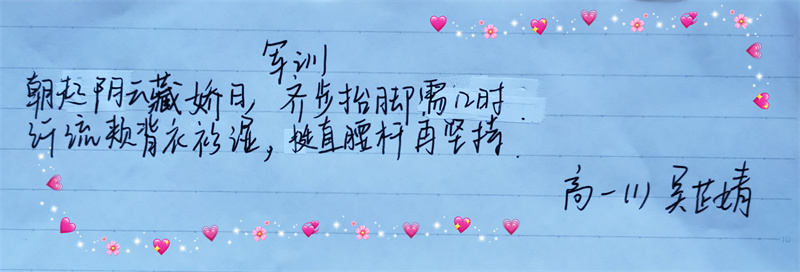 军训
朝起阴云藏娇日，齐步抬脚需几时．
汗流颊背衣衫湿，挺直腰杆再坚持．
高一(1) 吴芷婧